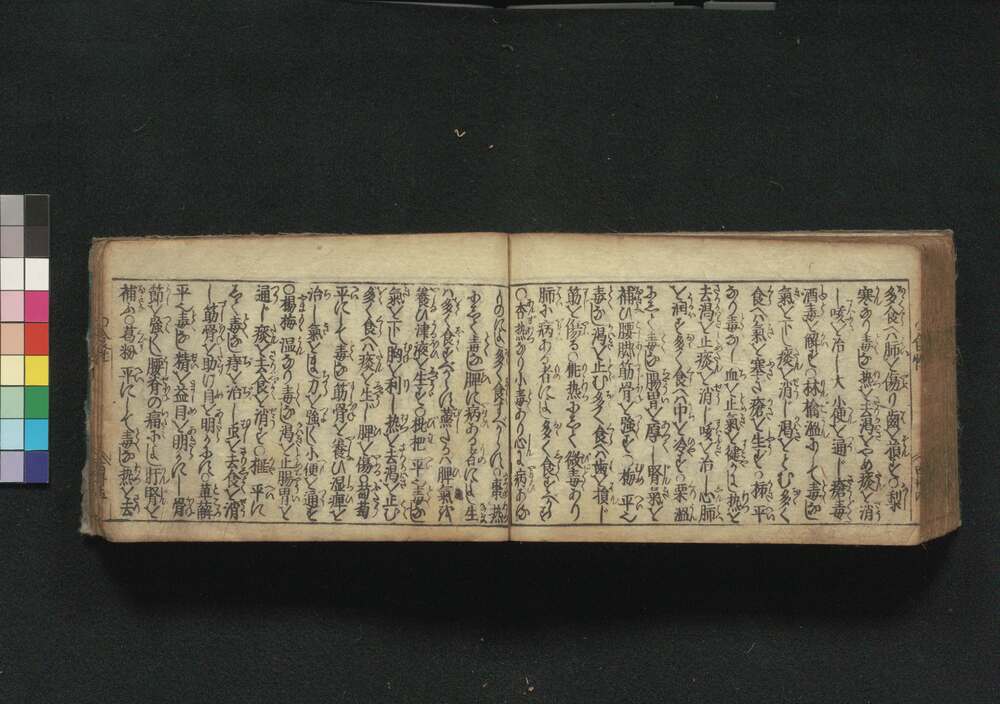 多く食へハ肺を傷り歯を損ず○梨
寒なり毒なし熱を去渇をやめ痰を消
し咳を治し大小便を通し瘡毒
酒毒を解す○林檎温にして毒なし
氣を下し痰を消し渇をとむ多く
食へハ氣を塞き瘡を生ず○柿平
なり毒なし血を止氣を健かに熱を
去渇を止痰を消し咳を治し心肺
を潤す多く食へハ中を冷す○栗温
にして毒なし腸胃を厚し腎氣を
補ひ腰脚筋骨を強す○梅平に
毒なし渇を止む多く食へハ歯を損じ
筋を傷る○桃熱にして微毒あり
肺に病ある者によし多く食すべからず
○杏熱なり小毒あり心に病ある
ものによし多く食すべからず○棗熱
にして毒なし脾に病ある者によし生
ハ多く食すべからず蒸たるハ脾氣を
養ひ津液を生ず○枇杷平に毒なし
氣を下し胸を利し熱を去渇を止む
多く食へハ痰を生じ脾を傷る○葡萄
平にして毒なし筋骨を養ひ湿痺を
治し氣をまし力を強し小便を通ず
○楊梅温なり毒なし渇を止腸胃を
通し痰を去食を消す○榧平に
して毒なし痔を治し虫を去食を消
し筋骨を助け目を明かにす○草薢
平に毒なし精を益目を明かにし骨
節を強し腰脊の痛によし肝腎を
補ふ○葛粉平にして毒なし熱を去